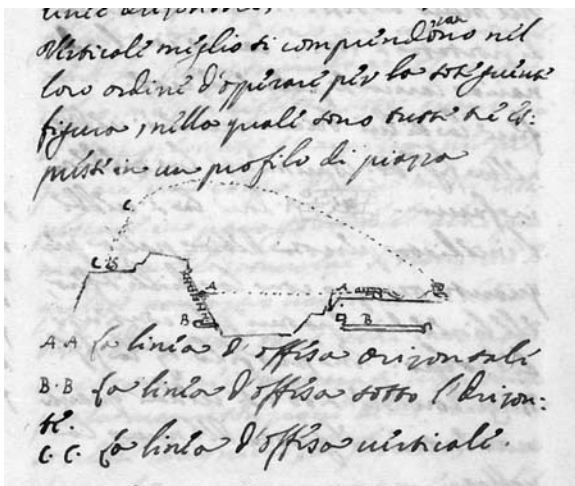 linie orizontali,
Verticali meglio si comprendono nel
loro ordine d'opperare per la soteguente
figura, nella quali sono tutte tre és:
presse in un profilo di piazza
C.
C
A
A
B
B
A.A La linia d'offesa orizontali
B.B La linia d'offesa sotto l'Orizon:
te.
C.C. La linia d'offesa verticali.